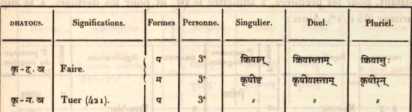 DHATOUS. Significations. Formes Personne. Singulier. Duel. Pluriel.
प 3ᵉ क्रियात् क्रियास्ताम् क्रियासुः
कृ-द. ञ Faire.
म 3ᵉ कृषीष्ट कृषीयास्ताम् कृषीरन्
कृ-न. ञ Tuer (421). प 3ᵉ " " "